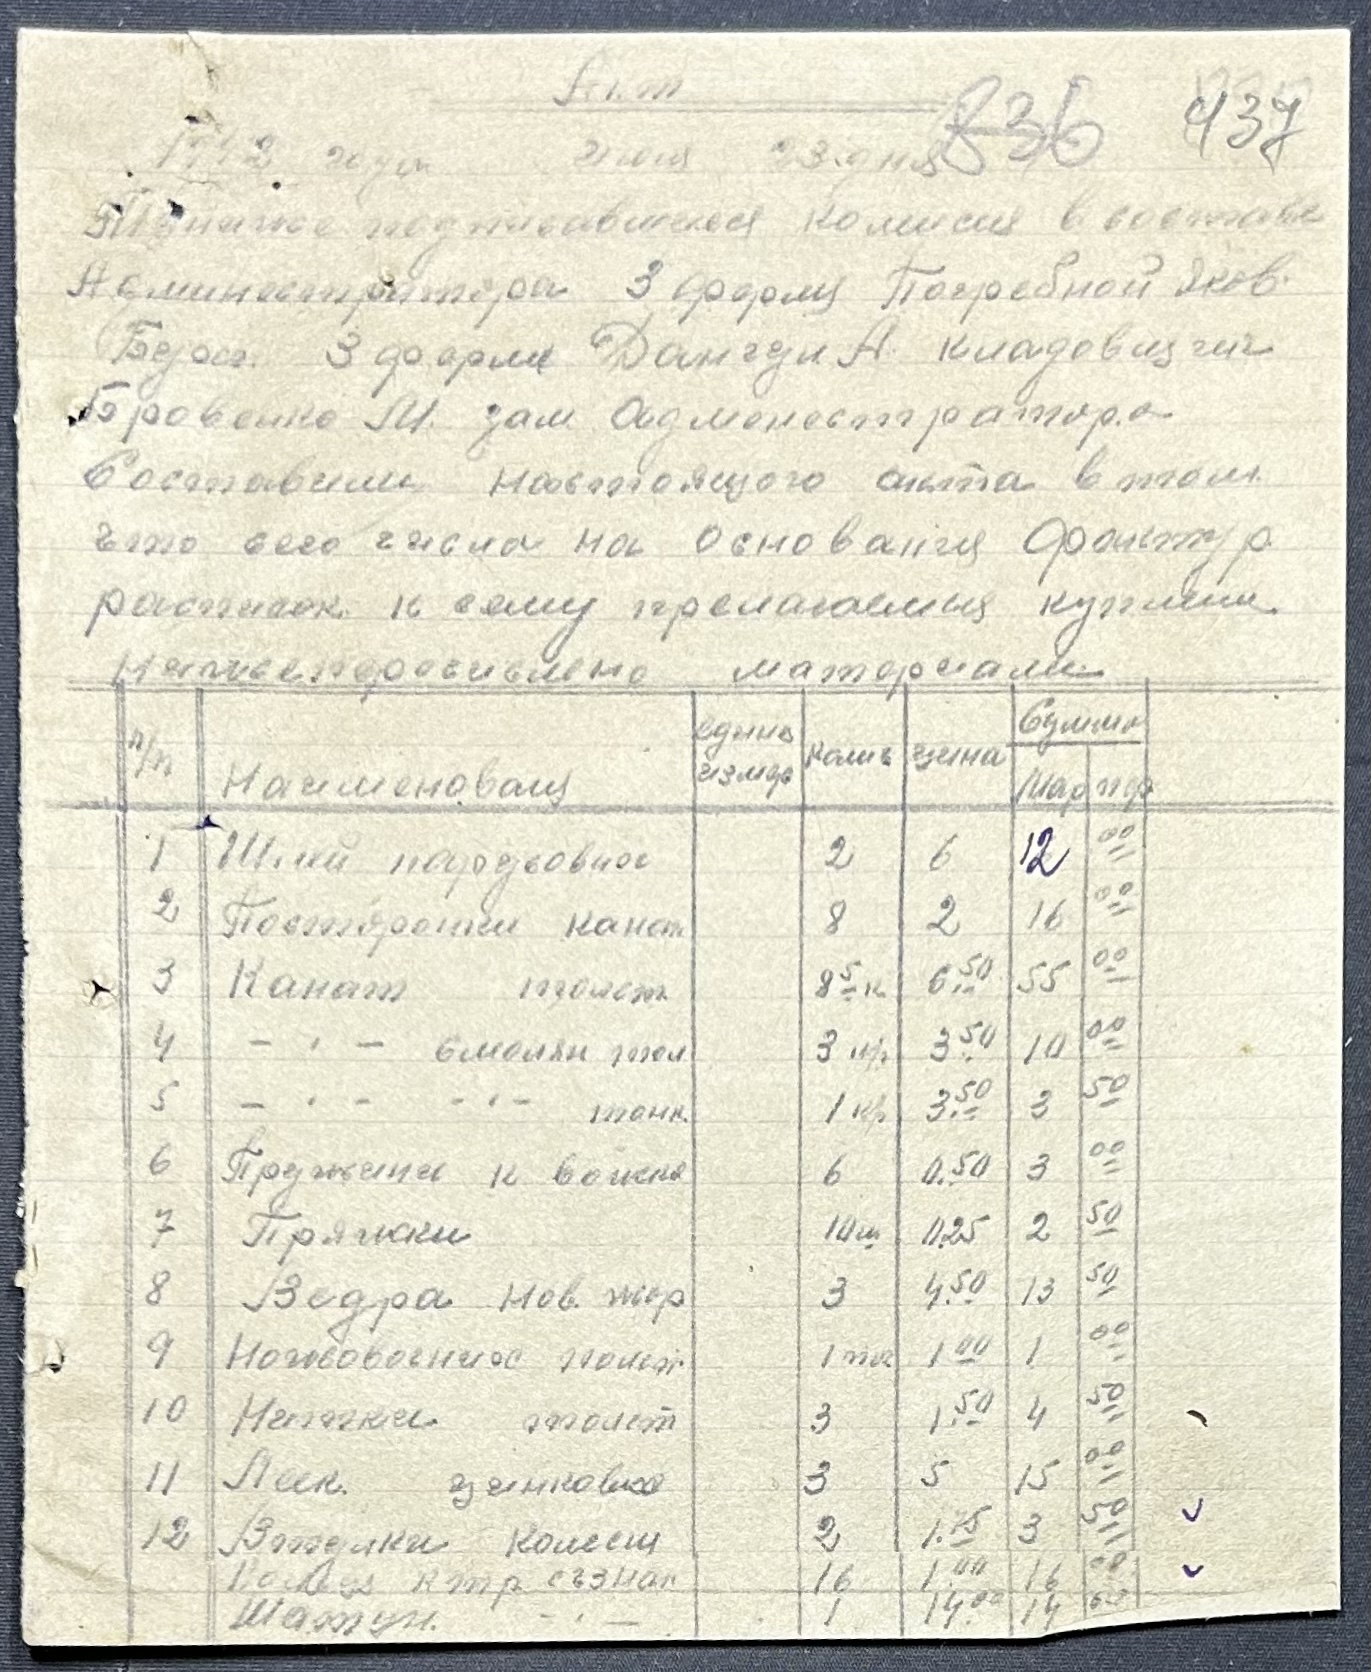 Акт
836 437
1942 года июля 23 дня
Мы ниже подписавшиеся комисия в составе
Администратора 3 фермы Погребной Яков.
Бухг. 3 ферми Дангул А. кладовщик
Бровенко М. зам адменестратора
Составили настоящого акта в том
что сего числа на основания фактур
расписок к сему прелагаемыя куплени
нижеперечислено материали
п/п Наименования едини измер колич цина Сумма
Мар пф
1 Шлеи парусовие 2 6 12 00
2 Постяронки канат 8 2 16 00
3 Канат толст 8 5 к 6.50 55 00
4 – " – смолян тол 3 кг 3.50 10 00
5 – " – – " – тонк. 1 кг 3.50 3 50
6 Пружини к 6 0.50 3 00
7 Пряжки 10 ш 0.25 2 50
8 Ведра нов. жер 3 4.50 13 50
9 толст. 1 1.00 1 00
10 Нитки толст 3 1.50 4 50
11 Леек. цинковие 3 5 15 00
12 Втулки колесн 2 1.75 3 50
Кольця к тр 16 1.00 16 00
Шатун. – " – 1 14.00 14 00